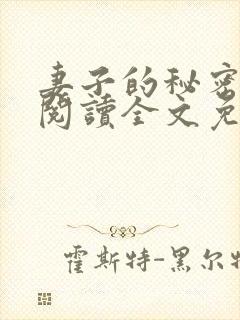 妻子的秘密
閱讀全文免
霍斯特-黑尔特